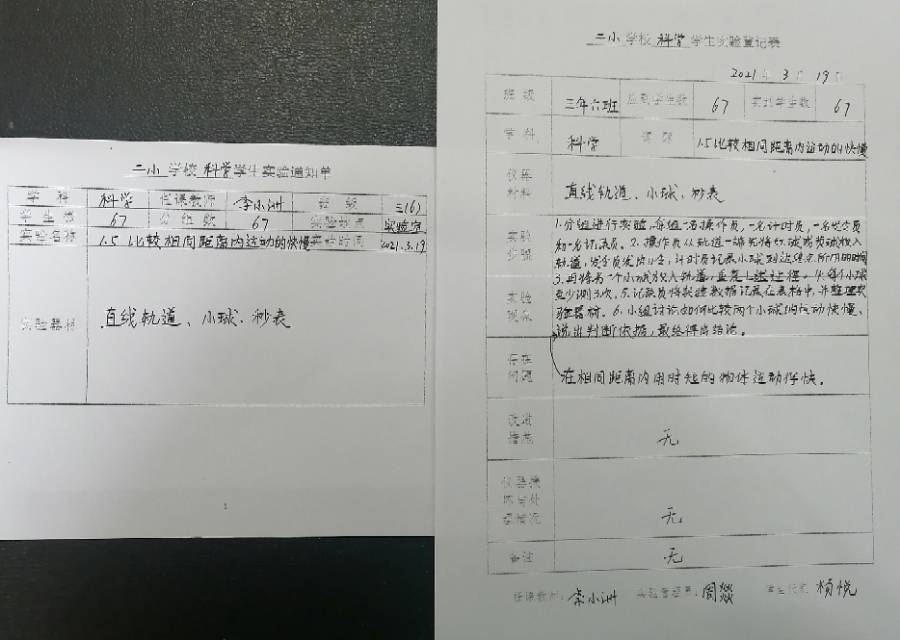 二小 学校 科学 学生实验通知单
学 科 科学 任课教师 李小洲 班 级 三(6)
学 生 数 67 分 组 数 67 实验地点 实验室
实验名称 1.5 比较相同距离内运动的快慢 实验时间 2021.3.19
实验器材 直线轨道、小球、秒表
二小 学校 科学 学生实验登记表
2021 年 3 月 19 日
班 级 三年六班 应到学生数 67 实到学生数 67
学 科 科学 课 题 1.5 比较相同距离内运动的快慢
仪器
材料
直线轨道、小球、秒表
实验
步骤
实验
现象
1.分组进行实验,每组一名操作员,一名计时员,一名发令员
和一名记录员。2.操作员从轨道一端先将红球或黄球放入
轨道,发令员发出口令,计时员记录小球到达终点所用的时间
3.再将另一个小球放入轨道,重复上述过程。4.每个小球
至少测3次。5.记录员将实验数据记录在表格中,并整理实
验器材。6.小组讨论如何比较两个小球的运动快慢、
说出判断依据,最终得出结论。
存在
问题
在相同距离内用时短的物体运动得快。
改进
措施
无
仪器损
坏与处
理情况
无
备注 无
任课教师: 李小洲 实验管理员: 周燚 学生代表: 杨悦